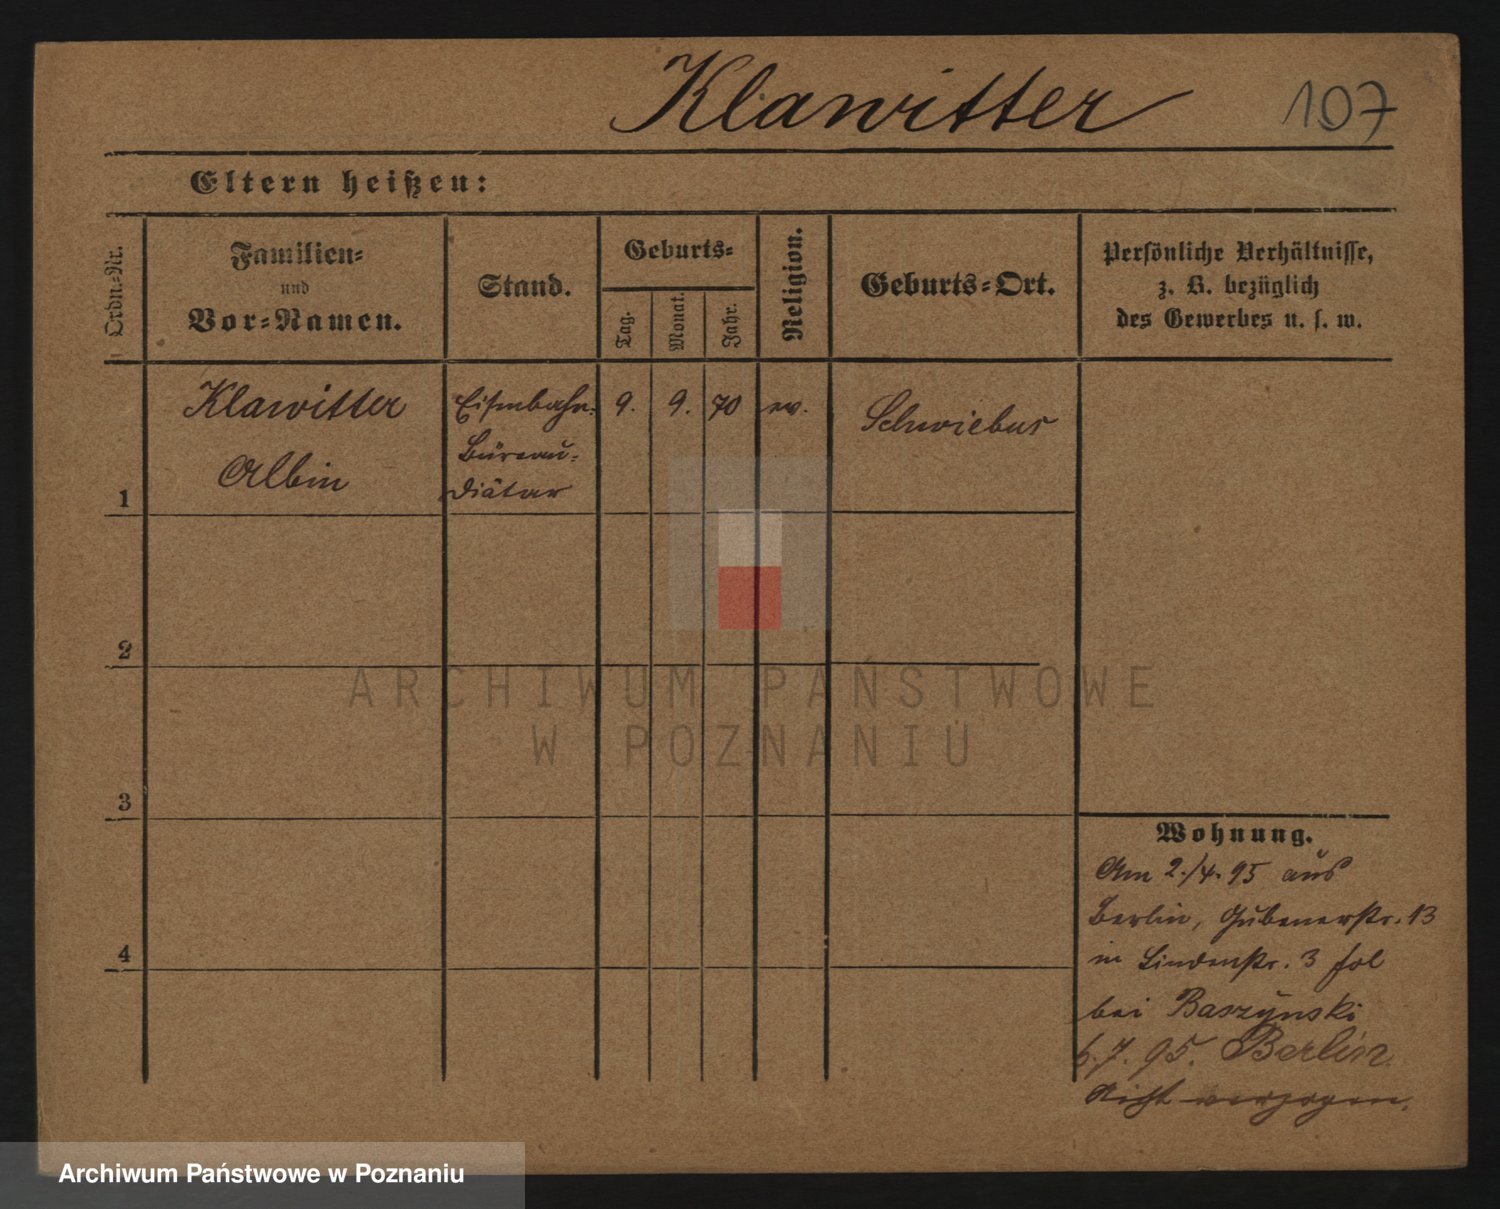 Klawitter
107
Eltern heißen:
Ordn.-Nr.
Familien-
und
Vor-Namen.
Stand.
Geburts-
Tag.
Monat.
Jahr.
Religion.
Geburts-Ort.
Persönliche Verhältnisse,
z. B. bezüglich
des Gewerbes u. s. w.
1
Klawitter
Albin
Eisenbahn-
Büreau-
Diätar
9.
9.
70
ev.
Schwiebus
2
3
4
Wohnung.
Am 2./4. 95 aus
Berlin, Gubenerstr. 13
in Lindenstr. 3
bei Baszynski
6.7.95. Berlin.
Nicht verzogen.
ARCHIWUM PAŃSTWOWE
W POZNANIU
Archiwum Państwowe w Poznaniu